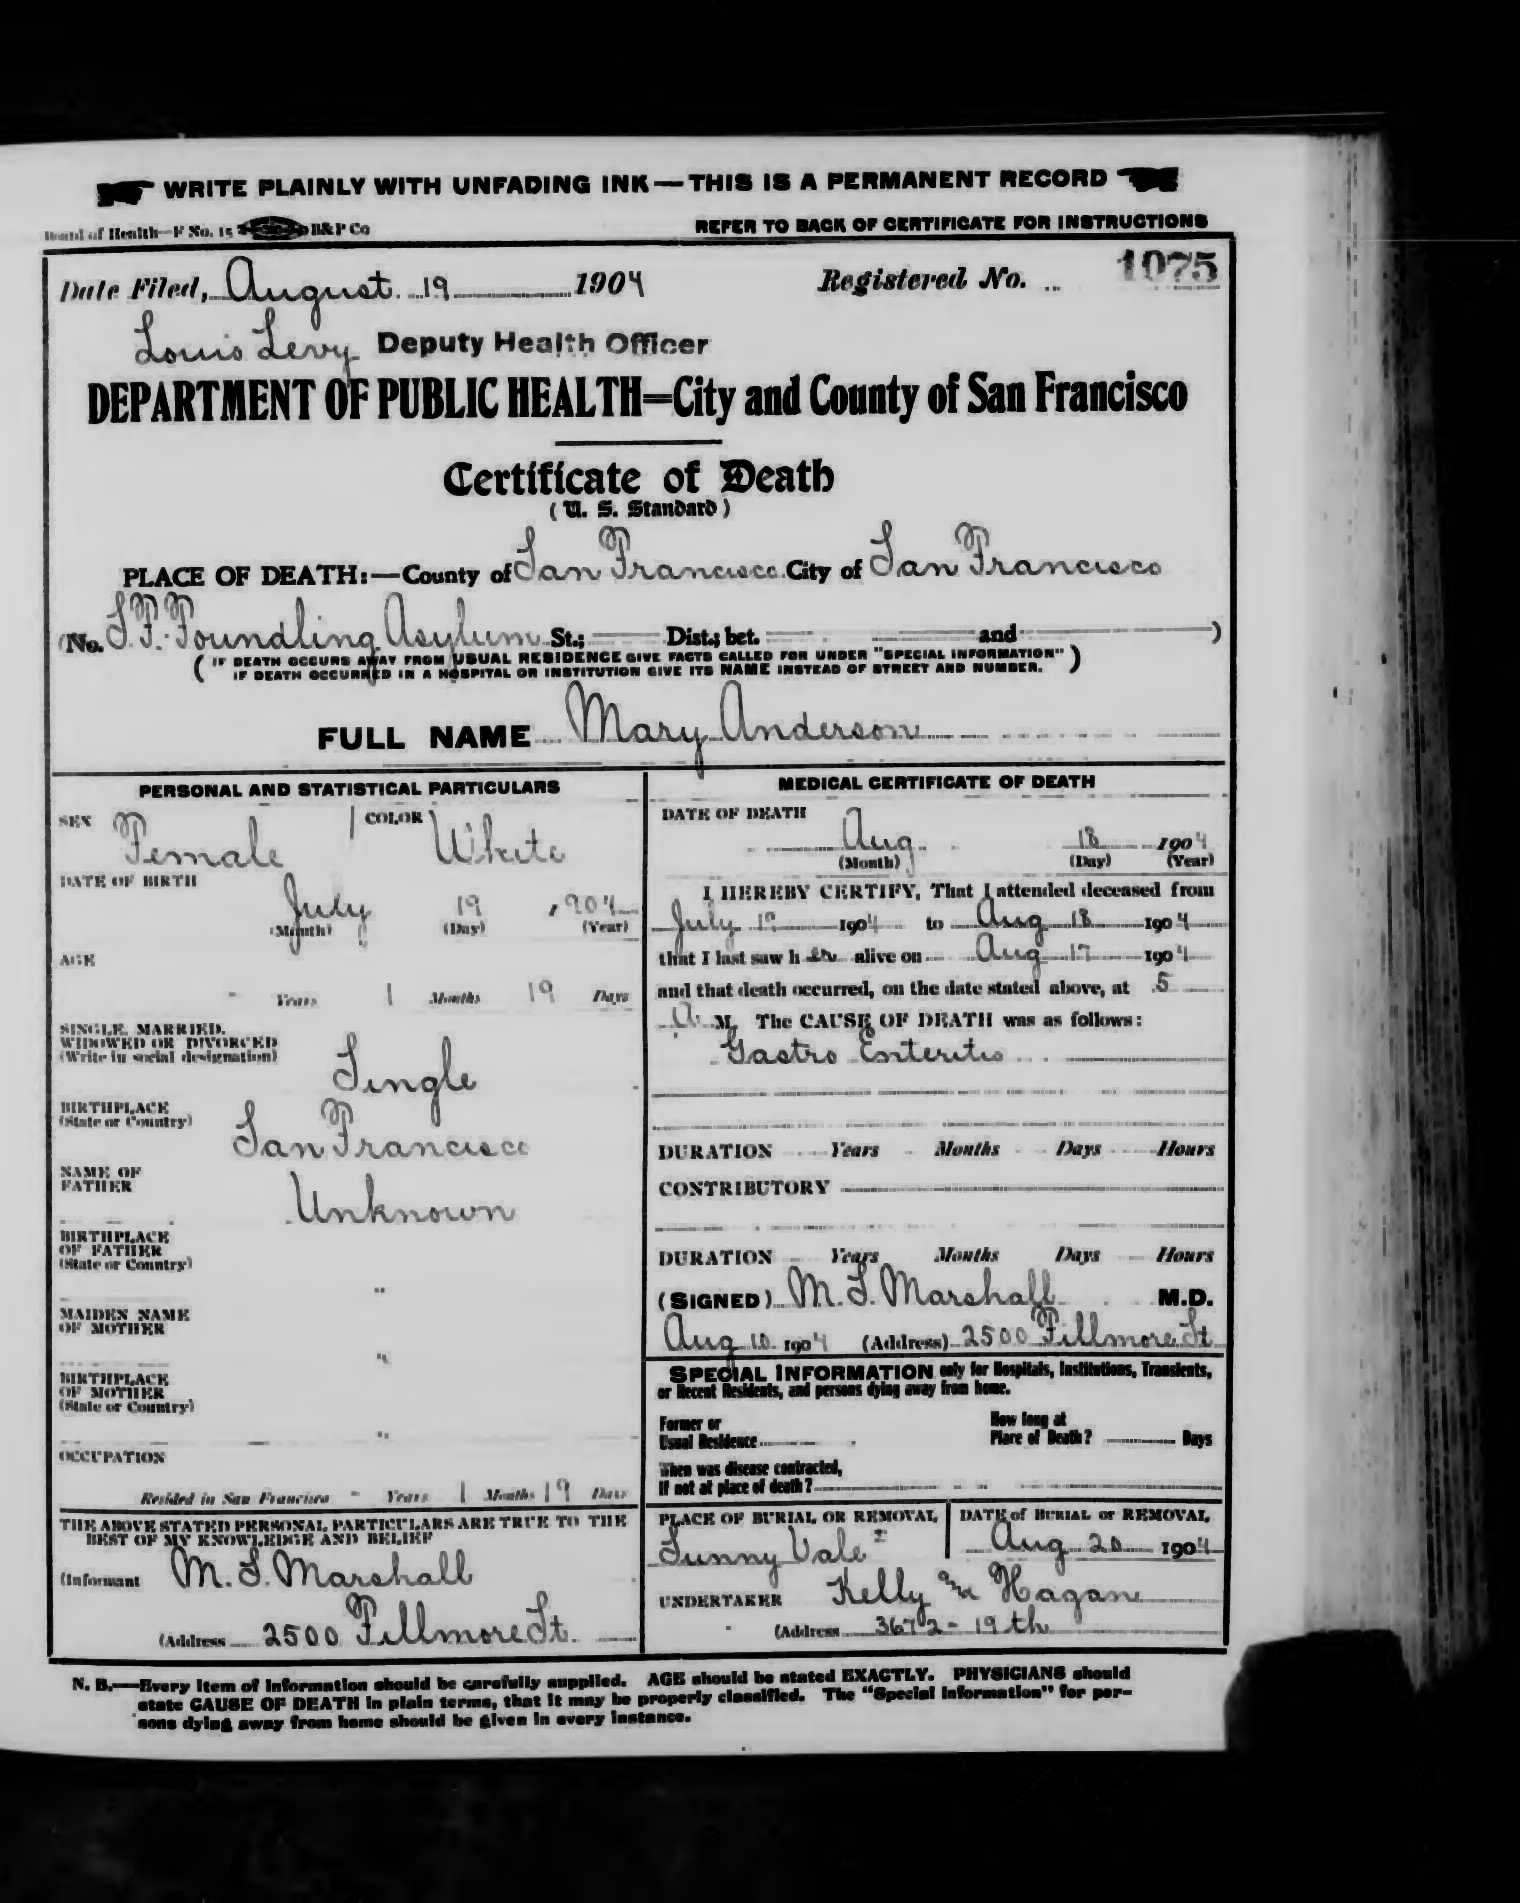 WRITE PLAINLY WITH UNFADING INK—THIS IS A PERMANENT RECORD
Board of Health—F No. 15 B&P Co
REFER TO BACK OF CERTIFICATE FOR INSTRUCTIONS
Date Filed, August 19 1904 Registered No. 1075
Louis Levy Deputy Health Officer
DEPARTMENT OF PUBLIC HEALTH=City and County of San Francisco
Certificate of Death
(U. S. Standard)
PLACE OF DEATH:—County of San Francisco City of San Francisco
(No. S.F. Foundling Asylum St.; Dist.; bet. and )
( IF DEATH OCCURS AWAY FROM USUAL RESIDENCE GIVE FACTS CALLED FOR UNDER "SPECIAL INFORMATION" )
IF DEATH OCCURRED IN A HOSPITAL OR INSTITUTION GIVE ITS NAME INSTEAD OF STREET AND NUMBER.
FULL NAME Mary Anderson
PERSONAL AND STATISTICAL PARTICULARS
SEX Female COLOR White
DATE OF BIRTH
July 19 1904
(Month) (Day) (Year)
AGE
- Years 1 Months 19 Days
SINGLE, MARRIED,
WIDOWED OR DIVORCED
(Write in social designation)
Single
BIRTHPLACE
(State or Country)
San Francisco
NAME OF
FATHER
Unknown
BIRTHPLACE
OF FATHER
(State or Country)
"
MAIDEN NAME
OF MOTHER
"
BIRTHPLACE
OF MOTHER
(State or Country)
"
OCCUPATION
Resided in San Francisco - Years 1 Months 19 Days
THE ABOVE STATED PERSONAL PARTICULARS ARE TRUE TO THE
BEST OF MY KNOWLEDGE AND BELIEF
(Informant M. S. Marshall
(Address 2500 Fillmore St.
MEDICAL CERTIFICATE OF DEATH
DATE OF DEATH
Aug 18 1904
(Month) (Day) (Year)
I HEREBY CERTIFY, That I attended deceased from
July 19 1904 to Aug 18 1904
that I last saw her alive on Aug 17 1904
and that death occurred, on the date stated above, at 5
A. M. The CAUSE OF DEATH was as follows:
Gastro Enteritis
DURATION Years Months Days Hours
CONTRIBUTORY
DURATION Years Months Days Hours
(SIGNED) M. S. Marshall M.D.
Aug 1904 (Address) 2500 Fillmore St
SPECIAL INFORMATION only for Hospitals, Institutions, Transients,
or Recent Residents, and persons dying away from home.
Former or
Usual Residence
How long at
Place of Death? Days
When was disease contracted,
If not at place of death?
PLACE OF BURIAL OR REMOVAL
Sunny Vale
DATE of BURIAL or REMOVAL
Aug 20 1904
UNDERTAKER Kelly and Hagan
(Address 3672 - 19th
N. B.—Every item of information should be carefully supplied. AGE should be stated EXACTLY. PHYSICIANS should
state CAUSE OF DEATH in plain terms, that it may be properly classified. The "Special Information" for per-
sons dying away from home should be given in every instance.